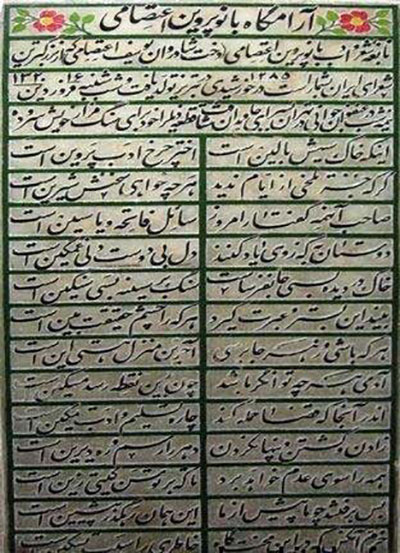 آرامگاه بانو پروین اعتصامی
نابغه شعر و ادب بانو پروین اعتصامی دخت شادروان یوسف اعتصامی که از بزرگترین
شعرای ایران بشمار است در ۱۲۸۵ خورشیدی در تبریز تولد یافت و شب شنبه ۱۶ فروردین ۱۳۲۰
در عنفوان جوانی در تهران بسرای جاودان شتافت قطعه ذیل را خود برای سنگ مزار خویش سروده
اینکه خاک سیهش بالین است اختر چرخ ادب پروین است
گرچه جز تلخی از ایام ندید هر چه خواهی سخنش شیرین است
صاحب آنهمه گفتار امروز سائل فاتحه و یاسین است
دوستان به که ز وی یاد کنند دل بی دوست دلی غمگین است
خاک در دیده بسی جانفرساست سنگ بر سینه بسی سنگین است
بیند این بستر و عبرت گیرد هر که را چشم حقیقت بین است
هر که باشی و ز هر جا برسی آخرین منزل هستی این است
آدمی هر چه توانگر باشد چون بدین نقطه رسد مسکین است
اندر آنجا که قضا حمله کند چاره تسلیم و ادب تمکین است
زادن و کشتن و پنهان کردن دهر را رسم و ره دیرین است
همه را سوی عدم خواهد برد تا که بر توسن گیتی زین است
پس برفتند چو ما پیش از ما این همان رهگذر پیشین است
خرم آنکس که در این محنت گاه خاطری را سبب تسکین است